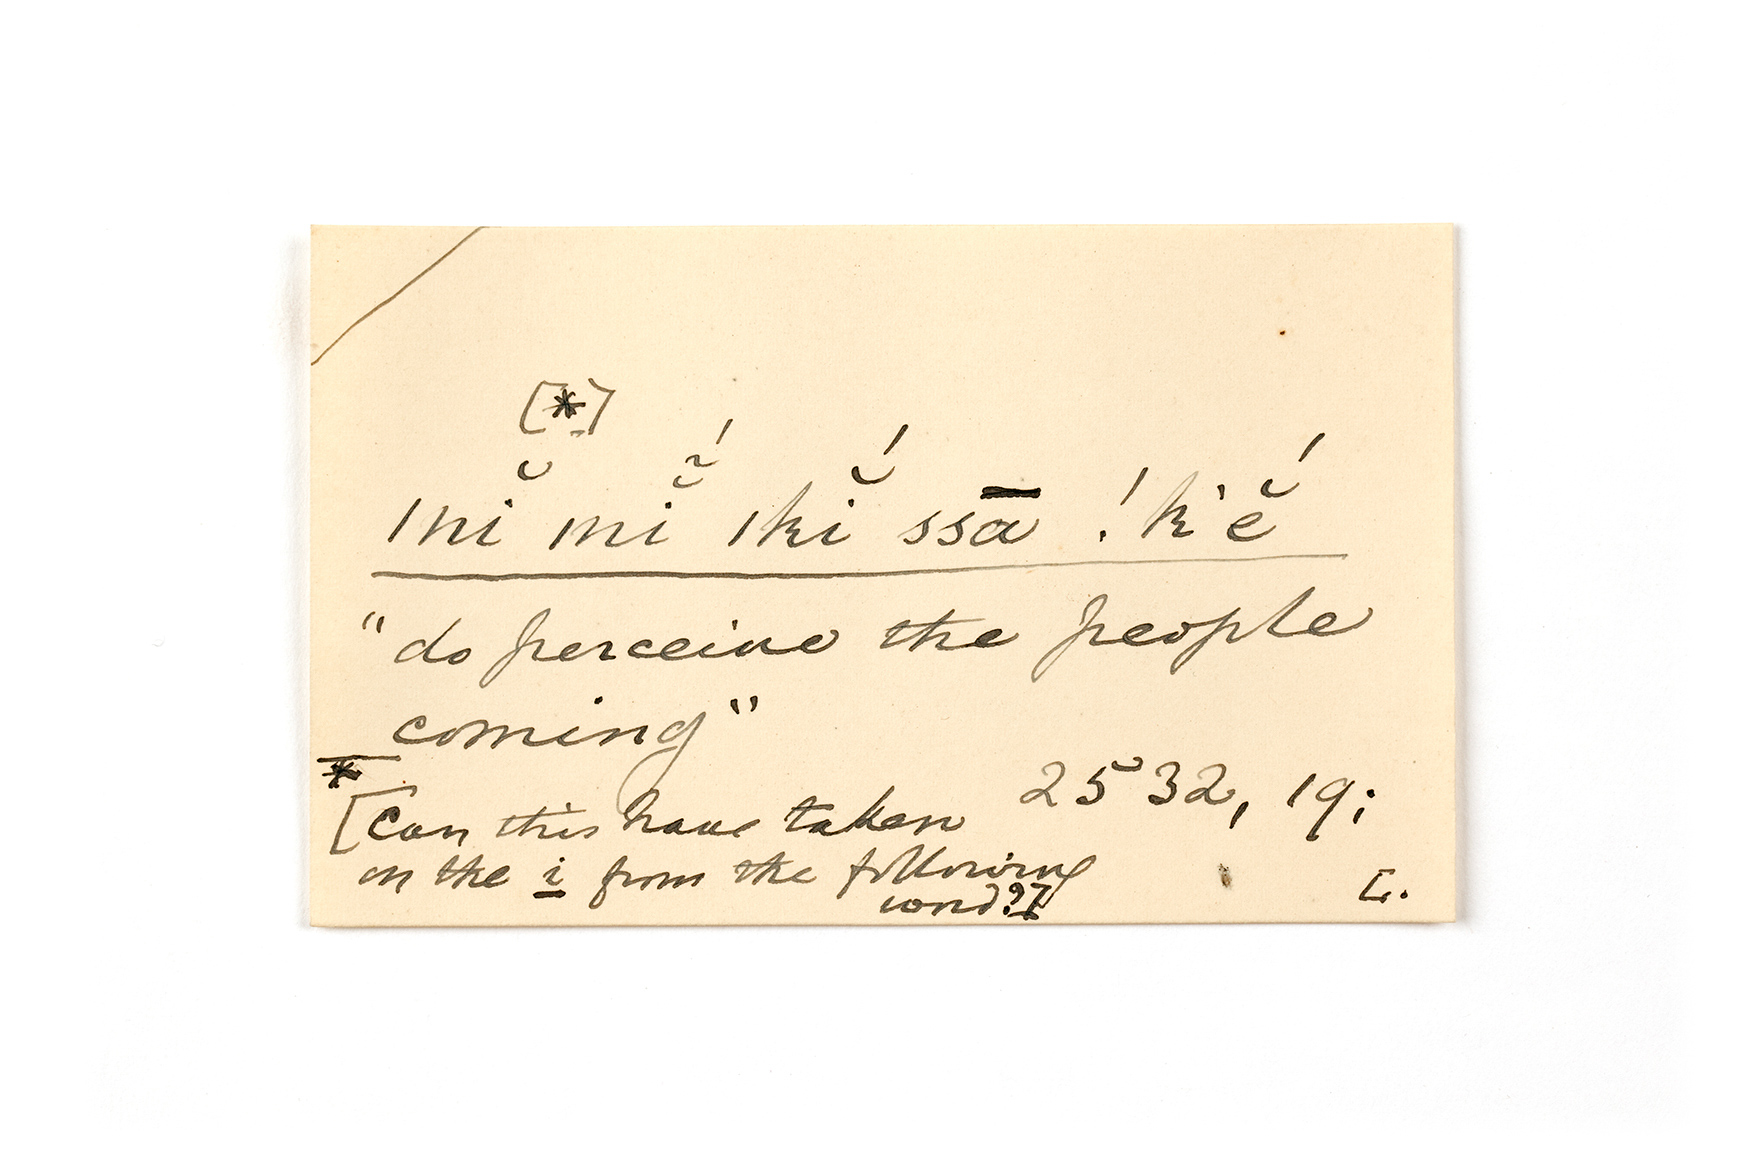 [*]
ınĭ mĭ̃́ ıkĭ́ ssā !k'ĕ́
"do perceive the people
coming"
2532, 19;
*
[Can this have taken
on the i from the following
word?]
L.